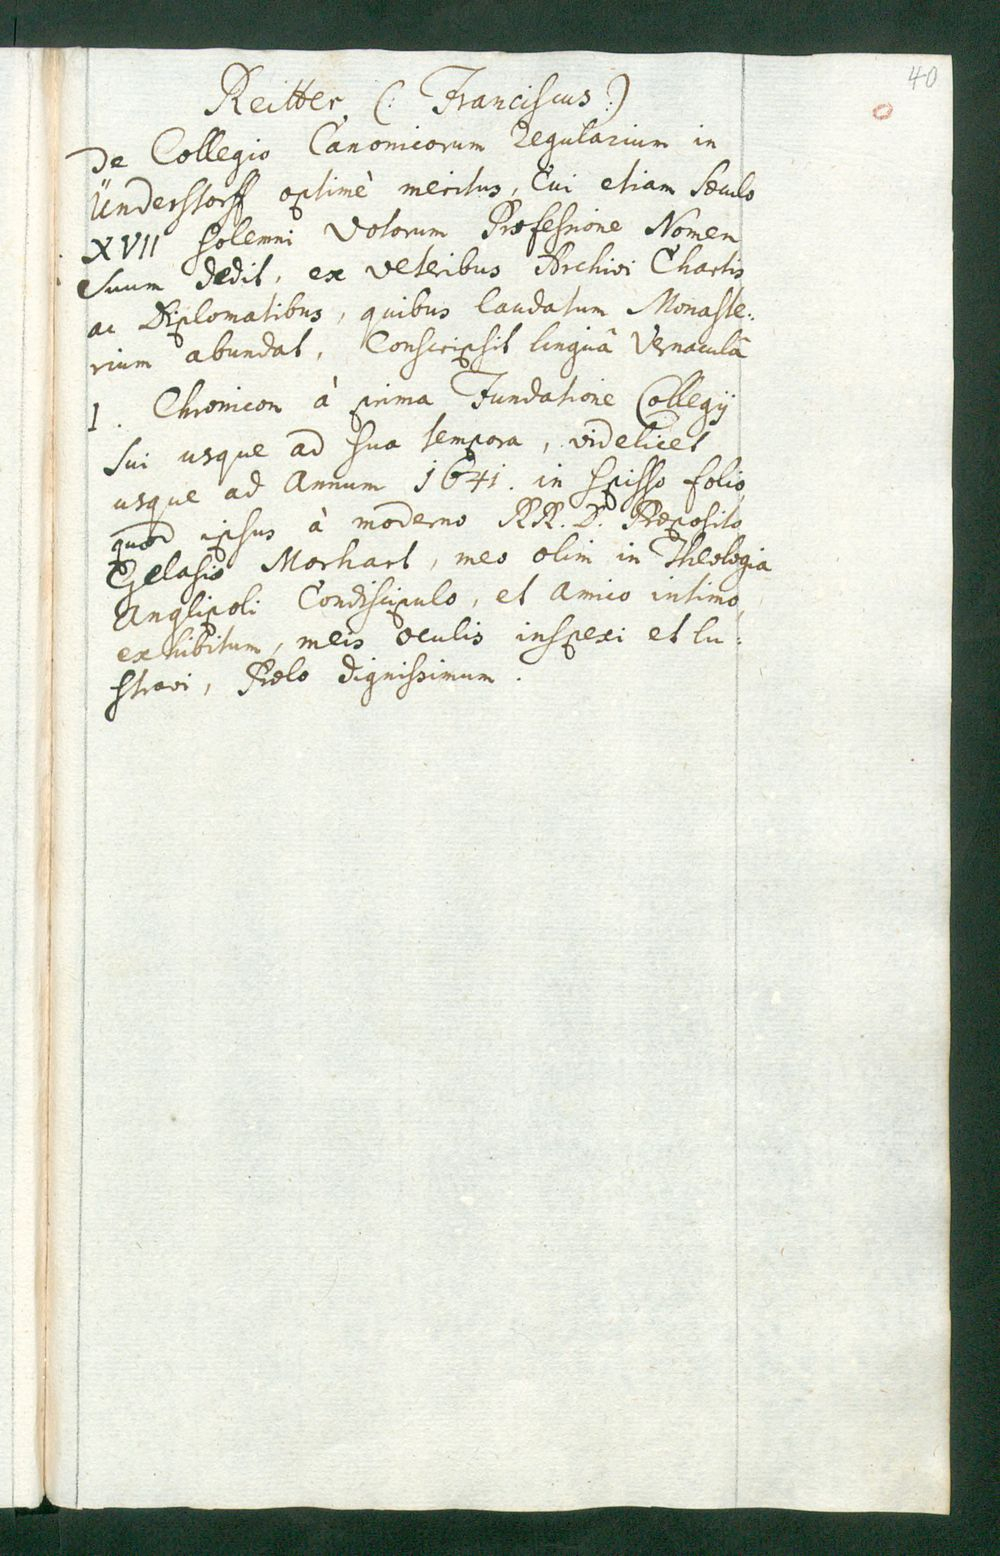 40
Reitter (: Franciscus :)
De Collegio Canonicorum Regularium in
Ünderstorff optimè meritus, Cui etiam sæculo
XVII solemni Votorum Professione Nomen
Suum dedit, ex veteribus Archivi Chartis
ac Diplomatibus, quibus laudatum Monaste:
rium abundat, Conscripsit linguâ Vernaculâ
1. Chronicon à prima Fundatione Collegij
sui usque ad sua tempora, videlicet
usque ad Annum 1641. in spisso folio,
quod ipsus à moderno RR. D. Præposito
Gelasio Morhart, meo olim in Theologia
Anglipoli Condiscipulo, et Amico intimo,
exhibitum, meis oculis inspexi et lu:
stravi, Prelo dignissimum.